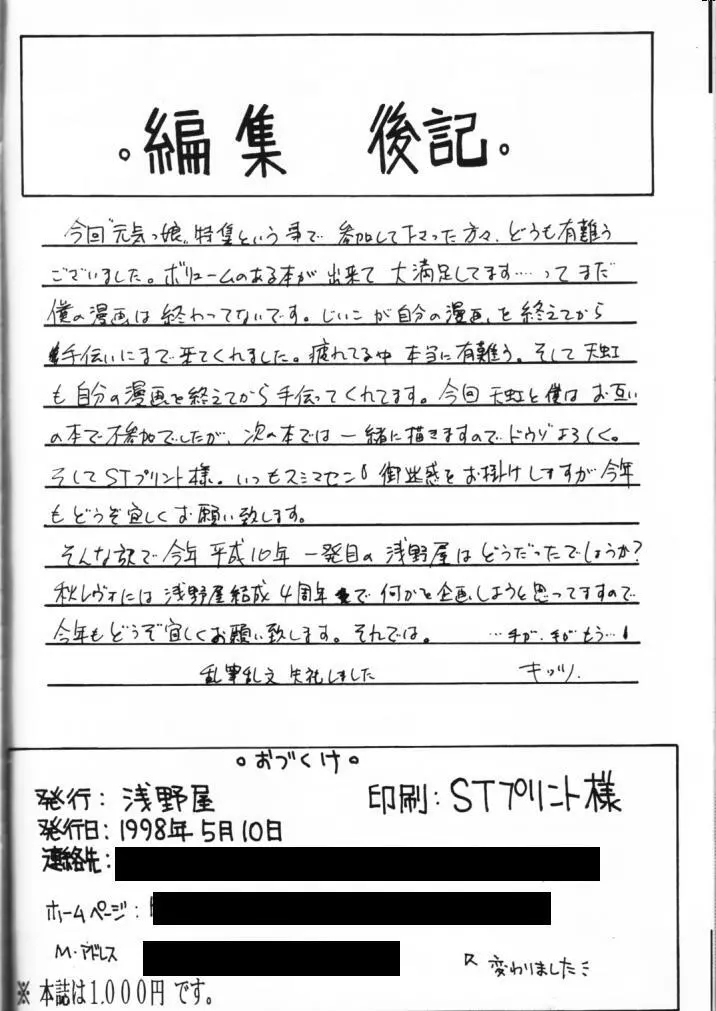 。編集 後記。
今回"元気っ娘"特集という事で 参加して下さった方々、どうも有難う
ございました。ボリュームのある本が 出来て 大満足してます……って まだ
僕の漫画は 終わってないです。じいこ が自分の漫画、を 終えてから
手伝いにまで 来てくれました。疲れてる中 本当に有難う。そして 天虹
も 自分の漫画を終えてから 手伝ってくれてます。今回 天虹と僕は お互い
の本で不参加でしたが、次の本では 一緒に描きますのでドウゾよろしく。
そしてSTプリント様。いつもスミマセン! 御迷惑を お掛けしますが 今年
も どうぞ宜しくお願い致します。
そんな訳で 今年 平成10年 一発目の 浅野屋は どうだったでしょうか?
秋レヴォには 浅野屋結成 4周年 で 何かを企画しようと思ってますので
今年も どうぞ宜しくお願い致します。それでは。 …手が、手がもう…!
乱筆乱文 失礼しました キッツ。
。おづくけ。
発行: 浅野屋 印刷: STプリント様
発行日: 1998年 5月10日
連絡先:
ホームページ:
M・アドレス
変わりました
※ 本誌は1.000円 です。